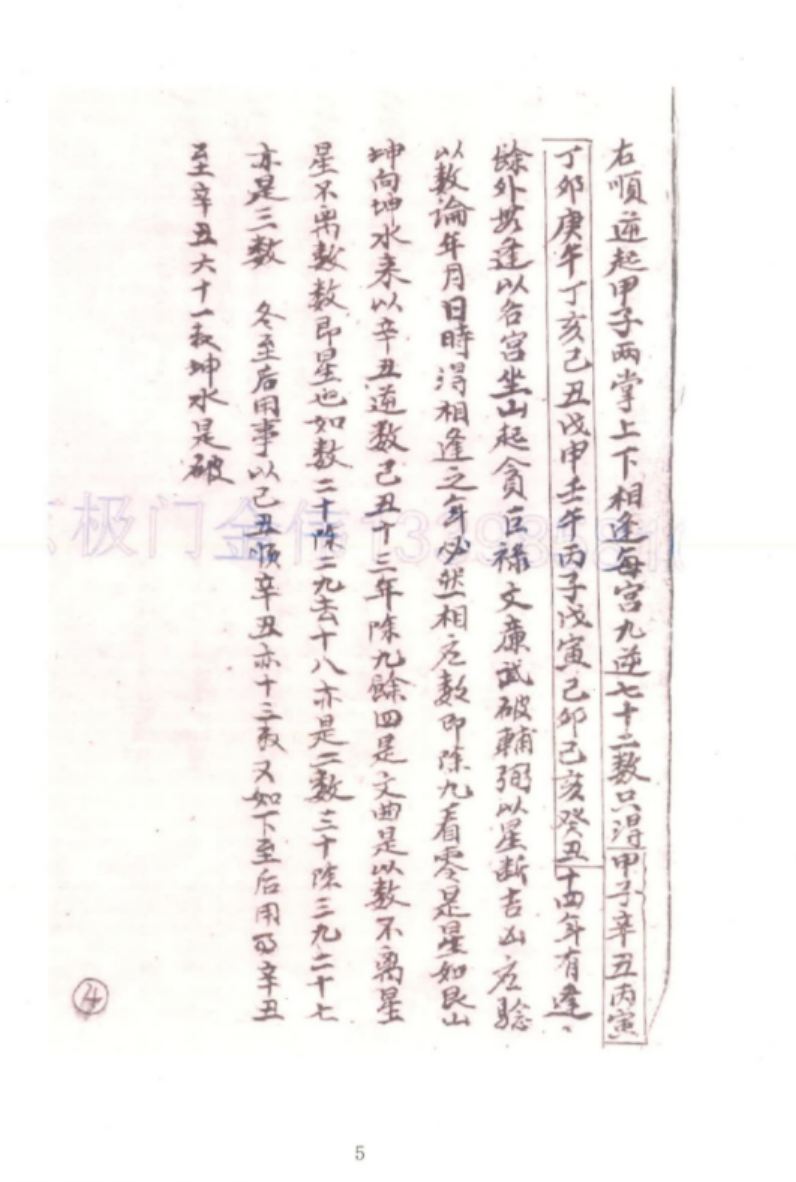 右順逆起甲子两掌上下相逢每宫九逆七十二数只得甲子辛丑丙寅
丁卯庚午丁亥己丑戊申壬午丙子戊寅己卯己亥癸丑十四年有逢、
餘外娄逢以各宫坐山起貪巨禄文廉武破輔弼以星断吉凶应驗
以数論年月日時得相逢之年必然相应数即除九看零是星如艮山
坤向坤水来以辛丑逆数己丑十三年除九餘四是文曲是以数不离星
星不离数数即星也如数二十除二九去十八亦是二数三十除三九二十七
亦是三数 冬至后用事以己丑順辛丑亦十三数又如下至后用事辛丑
至辛丑六十一数坤水是破
极门金伟
4
5